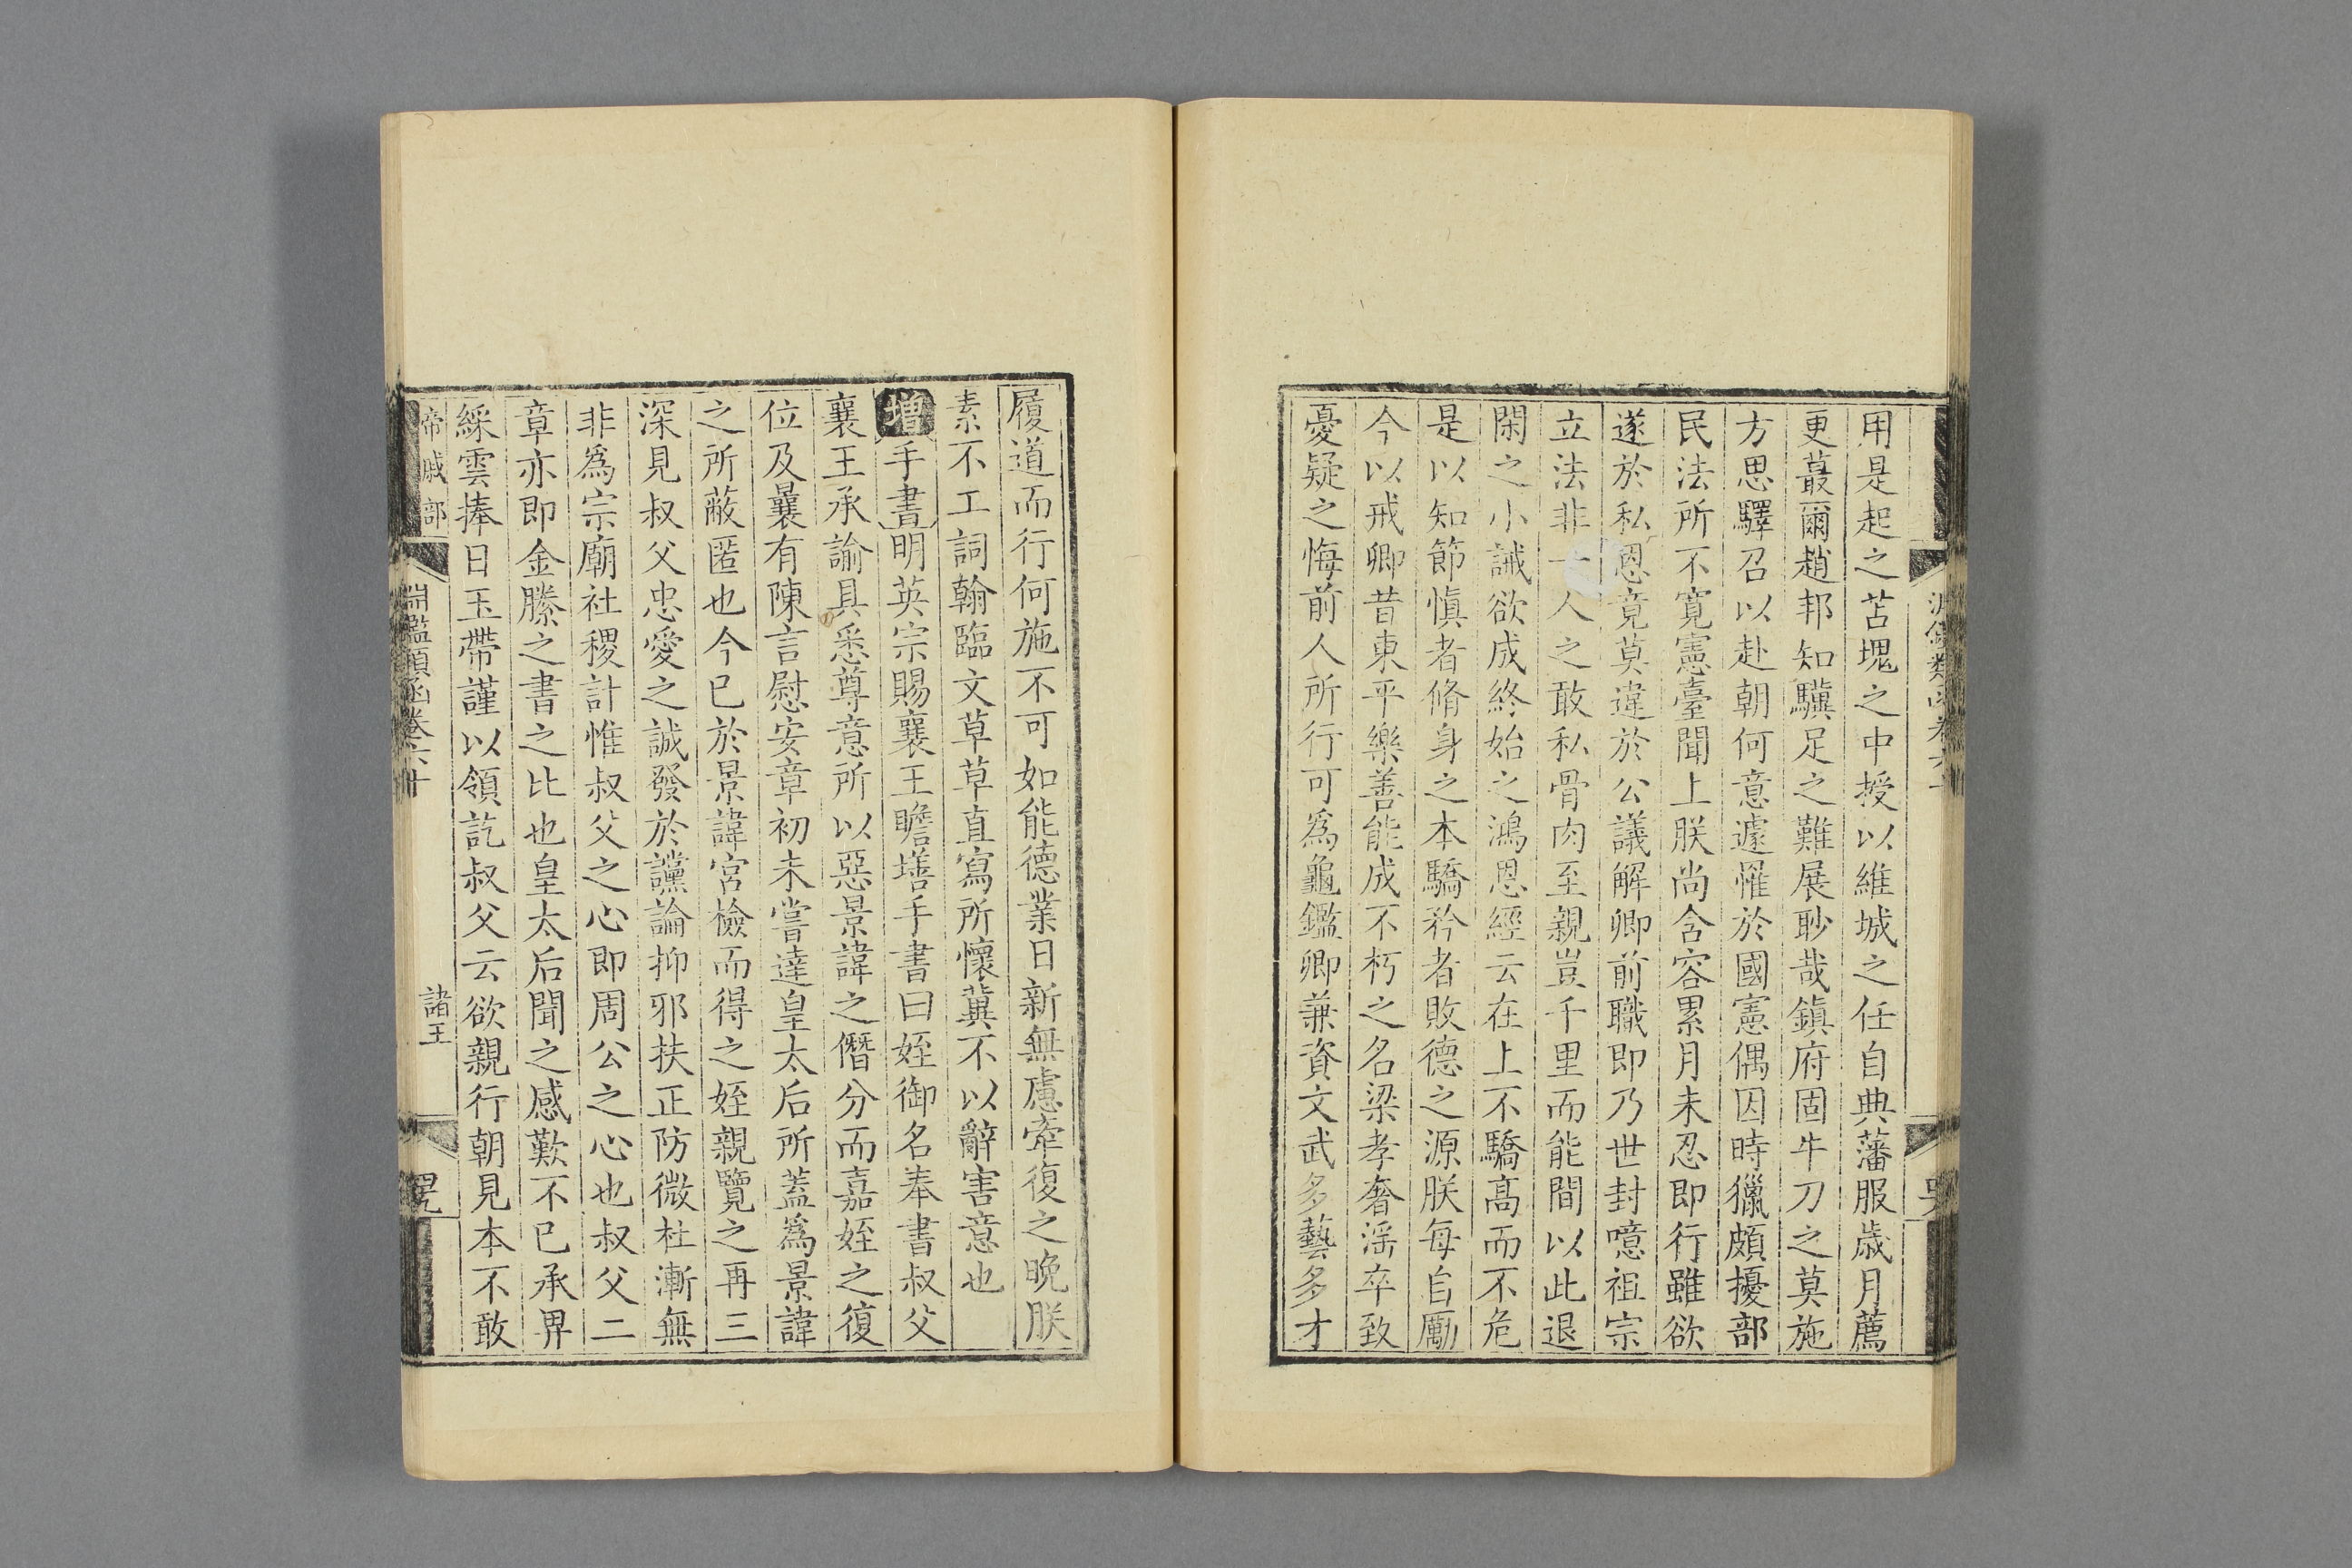 用是起之苫塊之中授以維城之任自典藩服歲月薦
更蕞爾趙邦知驥足之難展眇哉鎮府固牛刀之莫施
方思驛召以赴朝何意遽罹於國憲偶因時獵頗擾部
民法所不寬憲臺聞上朕尚含容累月未忍即行雖欲
遂於私恩竟莫違於公議解卿前職即乃世封噫祖宗
立法非一人之敢私骨肉至親豈千里而能間以此退
閑之小誡欲成終始之鴻恩經云在上不驕高而不危
是以知節慎者脩身之本驕矜者敗德之源朕每自勵
今以戒卿昔東平樂善能成不朽之名梁孝奢淫卒致
憂疑之悔前人所行可為龜鑑卿兼資文武多藝多才
履道而行何施不可如能德業日新無慮牽復之晚朕
素不工詞翰臨文草草直寫所懷冀不以辭害意也
增手書明英宗賜襄王瞻墡手書曰姪御名奉書叔父
襄王承諭具悉尊意所以惡景諱之僭分而嘉姪之復
位及曩有陳言慰安章初未嘗達皇太后所蓋為景諱
之所蔽匿也今已於景諱宮檢而得之姪親覽之再三
深見叔父忠愛之誠發於讜論抑邪扶正防微杜漸無
非為宗廟社稷計惟叔父之心即周公之心也叔父二
章亦即金縢之書之比也皇太后聞之感歎不已承畀
綵雲捧日玉帶謹以領訖叔父云欲親行朝見本不敢
帝戚部 淵鑑類函卷六十 諸王